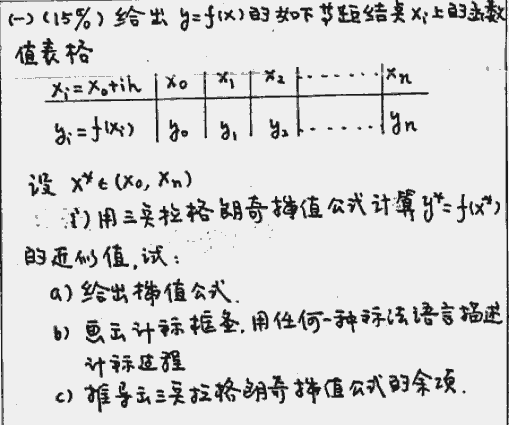 (一) (15%) 给出 y=f(x) 的如下等距结点 xᵢ 上的函数
值表格
xᵢ=x₀+ih x₀ x₁ x₂ ....... xₙ
yᵢ=f(xᵢ) y₀ y₁ y₂ ....... yₙ
设 x*∈(x₀, xₙ)
i) 用三点拉格朗奇插值公式计算 y*=f(x*)
的近似值,试:
a) 给出插值公式.
b) 画出计标框图,用任何一种标法语言描述
计标过程
c) 推导出三点拉格朗奇插值公式的余项.